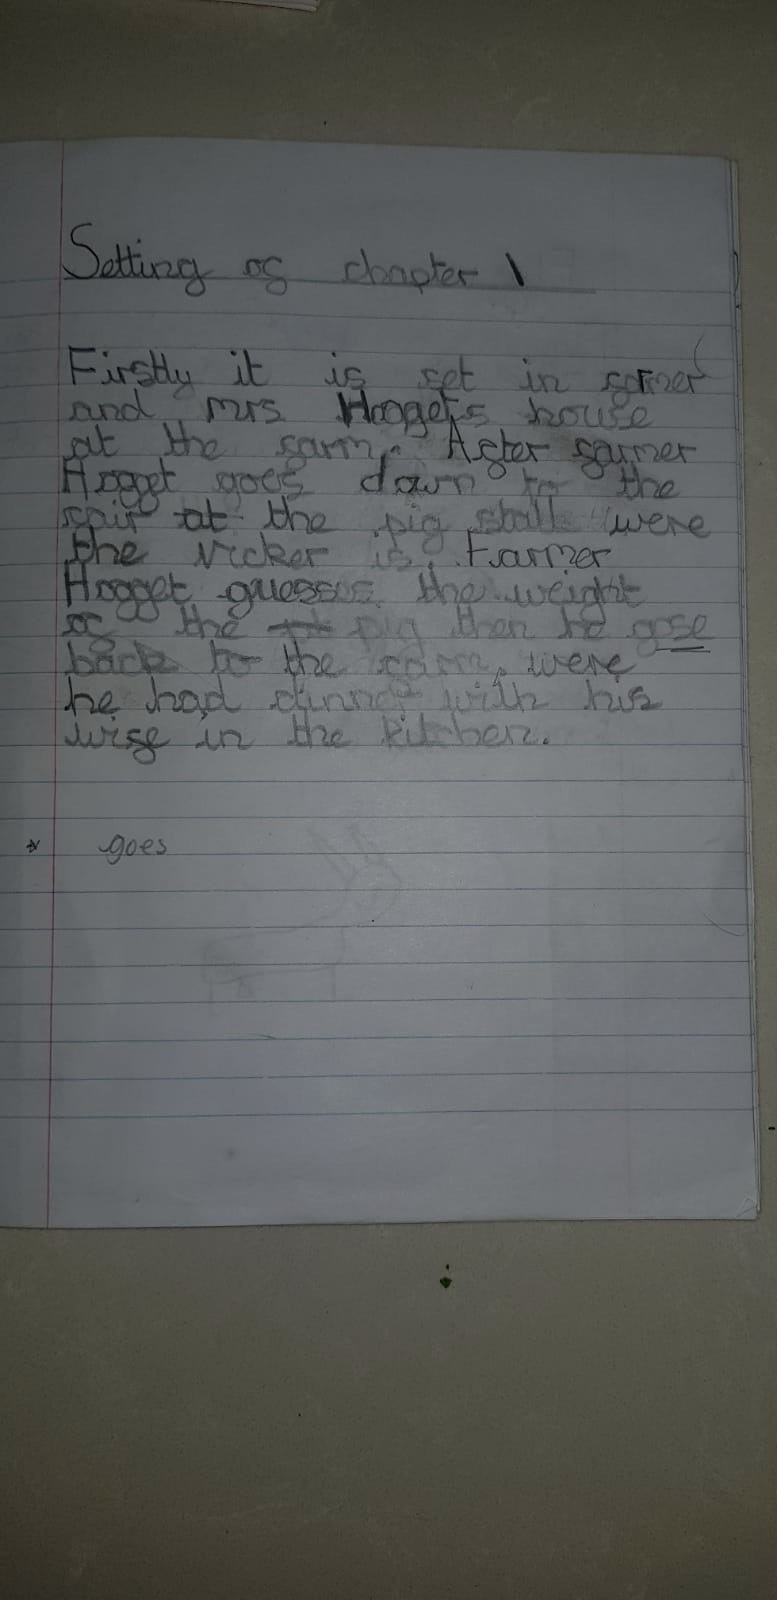 Setting of chapter 1
Firstly it is set in farmer
and mrs Hogget's house
at the farm. After farmer
Hogget goes down to the
fair at the pig stall were
the vicker is. Farmer
Hogget guesses the weight
of the pig then he gose
back to the farm, were
he had dinner with his
wife in the kitchen.
* goes